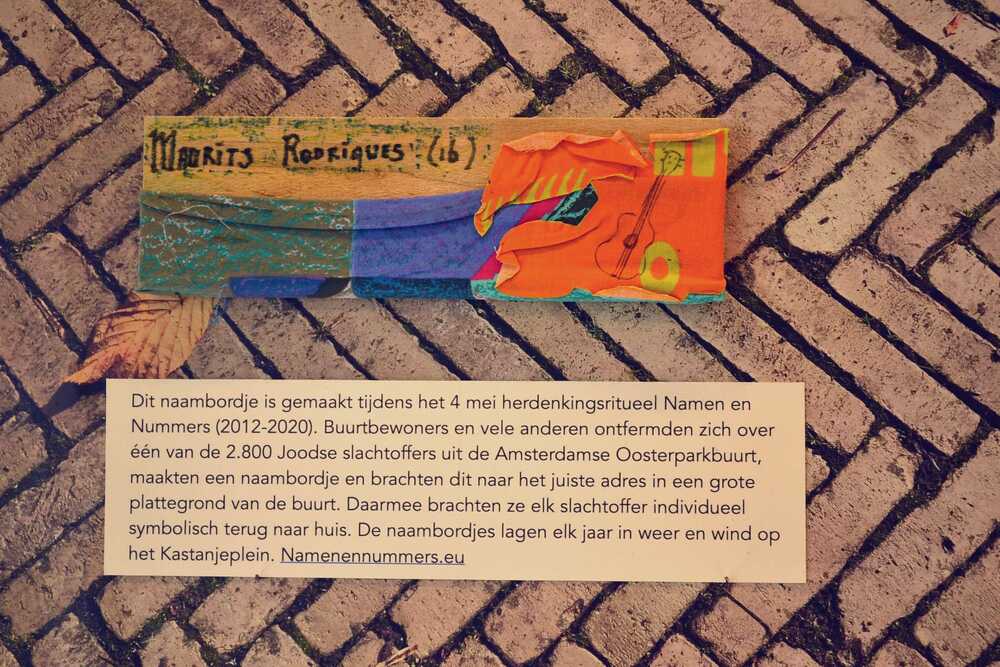 Maurits Rodriques (16)
Dit naambordje is gemaakt tijdens het 4 mei herdenkingsritueel Namen en
Nummers (2012-2020). Buurtbewoners en vele anderen ontfermden zich over
één van de 2.800 Joodse slachtoffers uit de Amsterdamse Oosterparkbuurt,
maakten een naambordje en brachten dit naar het juiste adres in een grote
plattegrond van de buurt. Daarmee brachten ze elk slachtoffer individueel
symbolisch terug naar huis. De naambordjes lagen elk jaar in weer en wind op
het Kastanjeplein. Namenennummers.eu